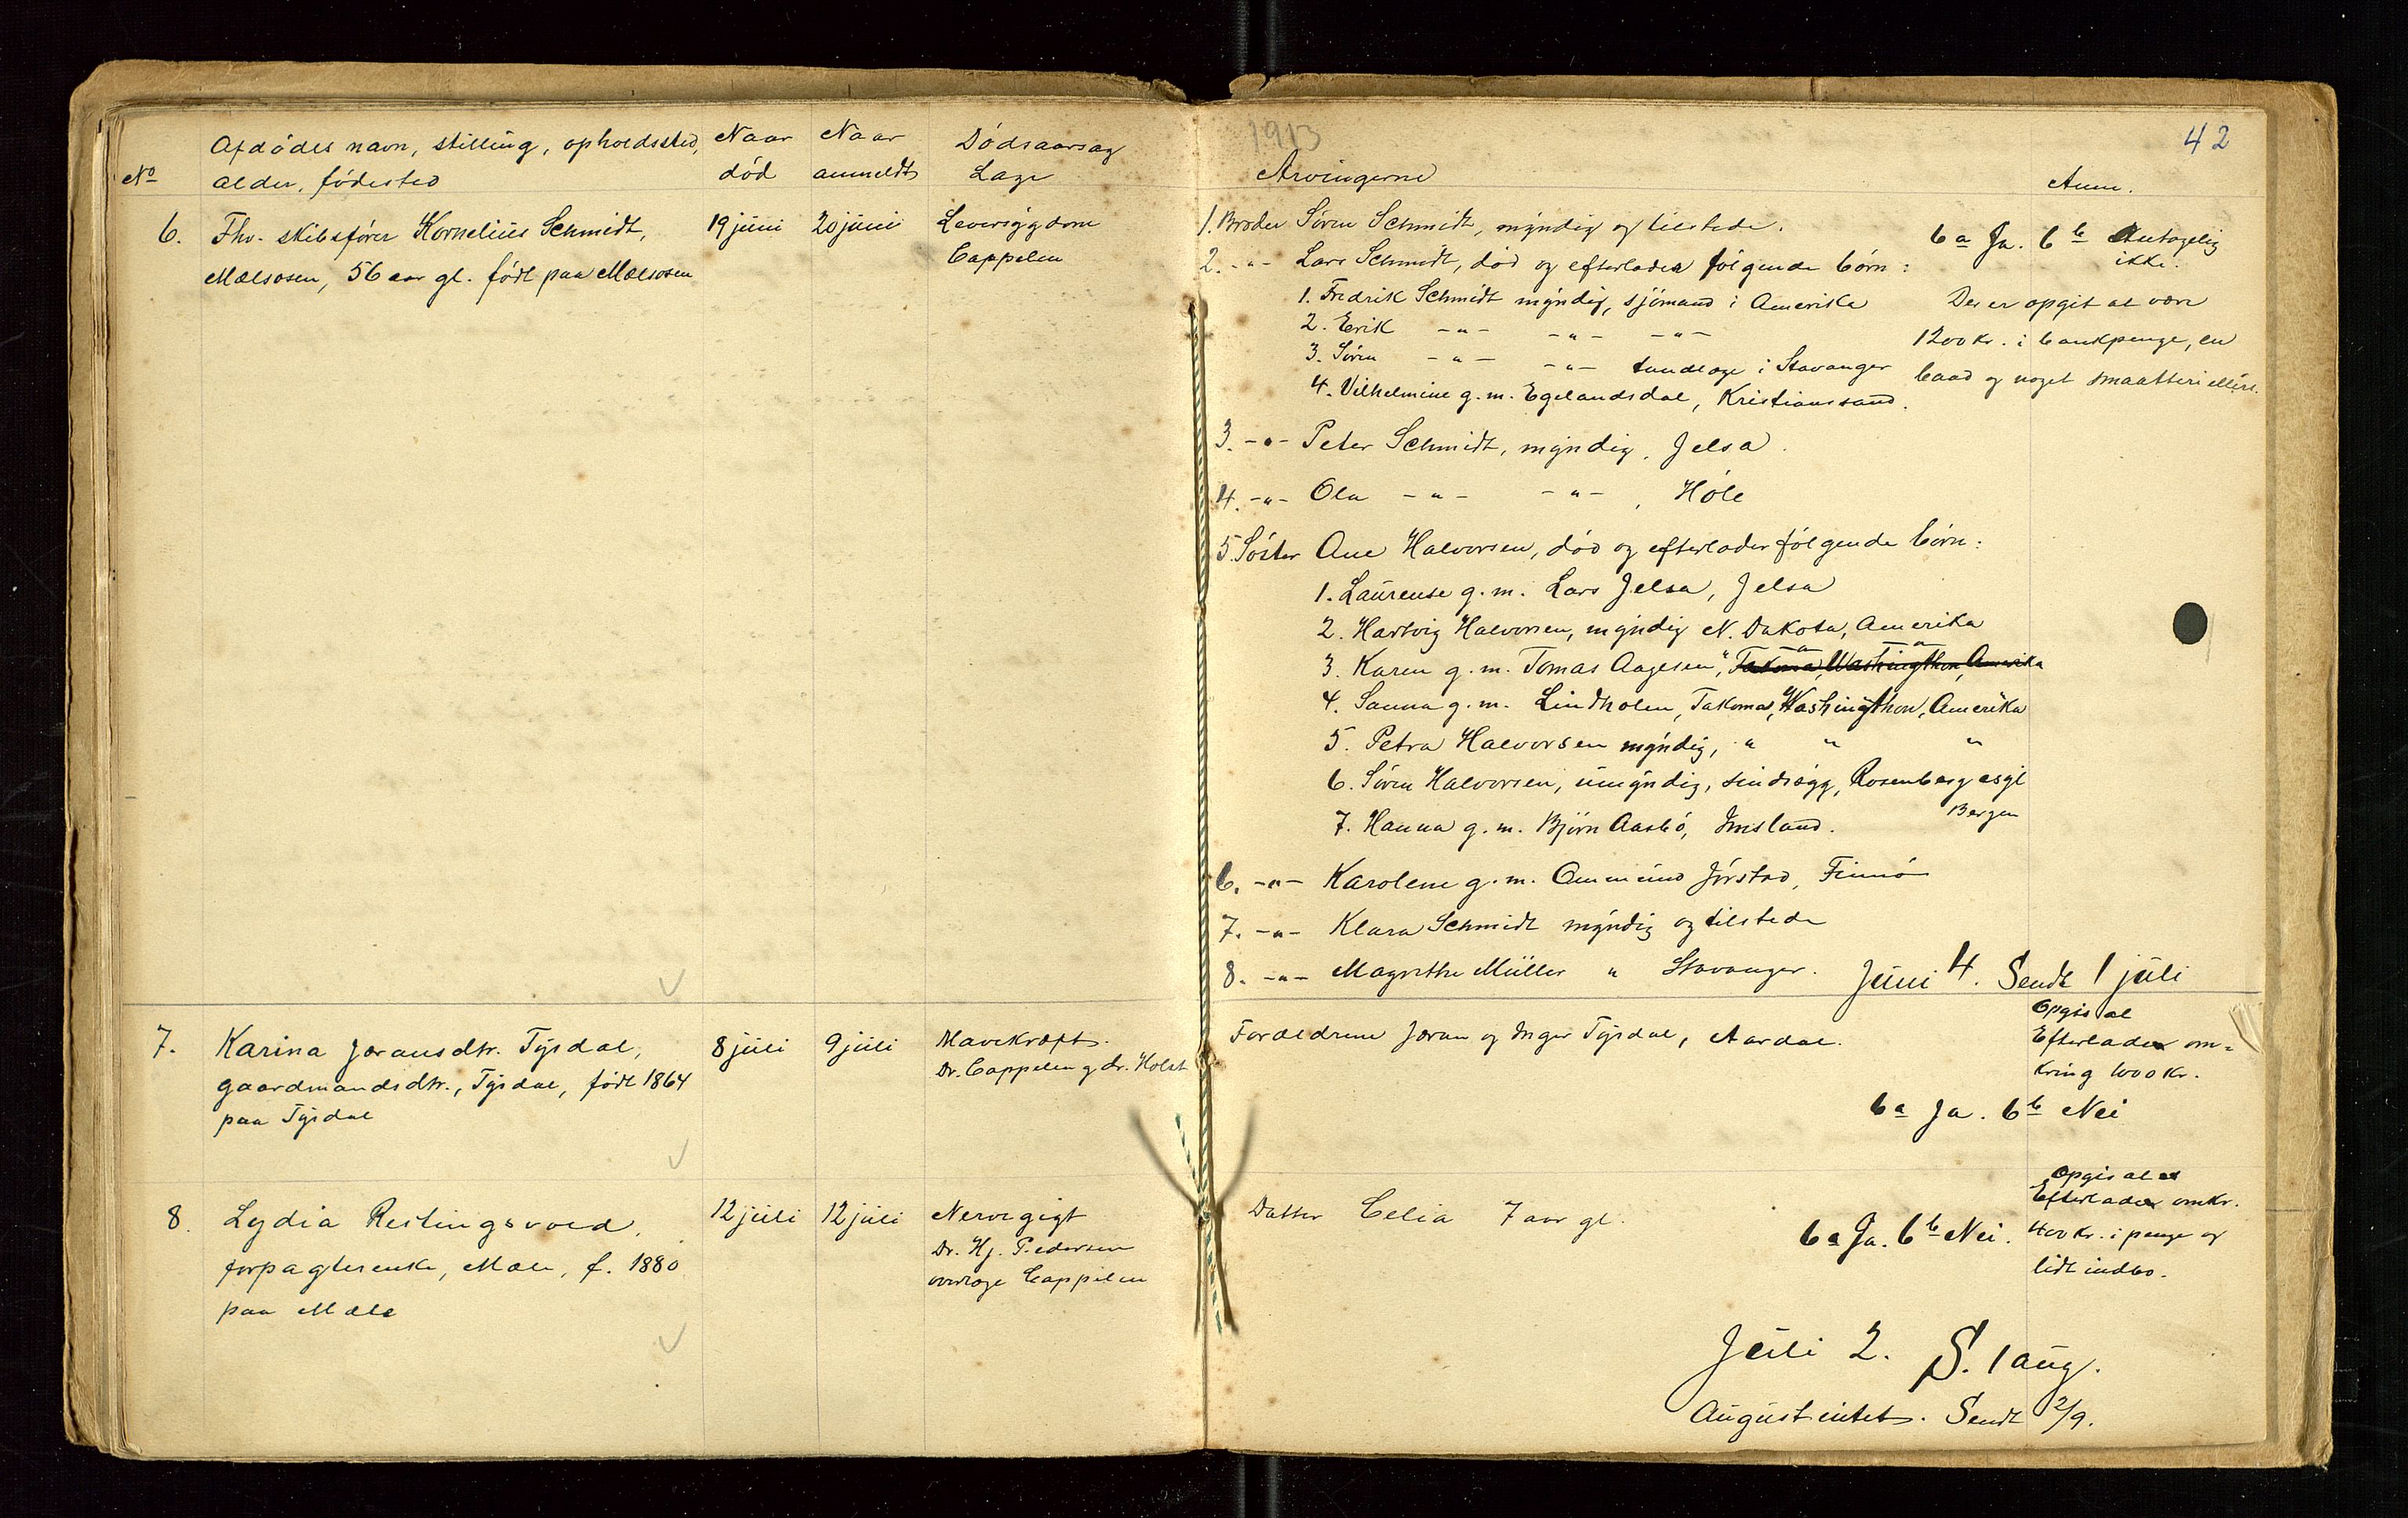 Afdødes navn, stilling, opholdssted,
No alder, fødested
Naar død
Naar anmeldt
Dødsaarsag
Læge
6. Fhv. skibsfører Kornelius Schmidt,
Mælsosen, 56 aar gl. født paa Mælsosen
19 juni
20 juni
Leversygdom
Cappelen
7. Karina Joransdtr. Tysdal,
gaardmandsdtr., Tysdal, født 1864
paa Tysdal
8 juli
9 juli
Mavekræft.
Dr. Cappelen og dr. Holst
8. Lydia Restingsvold,
forpagterenke, Mæle, f. 1880
paa Mæle
12 juli
12 juli
Nervegigt
Dr. Hj. Pedersen
overlæge Cappelen
1913
42
Arvingerne
Anm.
1. Broder Søren Schmidt, myndig og tilstede.
2. -"- Lars Schmidt, død og efterlader følgende børn:
1. Fredrik Schmidt myndig, sjömand i Amerika
2. Erik -"- -"- -"-
3. Søren -"- -"- tandlæge i Stavanger
4. Vilhelmine g.m. Egelandsdal, Kristianssand.
3. -"- Peter Schmidt, myndig, Jelsa.
4. -"- Ola -"- -"- , Høle
5. Søster Ane Halvorsen, død og efterlader følgende børn:
1. Laurense g.m. Lars Jelsa, Jelsa
2. Hartvig Halvorsen, myndig N. Dakota, Amerika
3. Karen g.m. Tomas Aagesen, " -"- -"- Takoma, Washingthon, Amerika
4. Sanna g.m. Lindholm, Takoma, Washingthon, Amerika
5. Petra Halvorsen myndig, " " "
6. Søren Halvorsen, umyndig, sindssyg, Rosenberg asyl
Bergen
7. Hanna g.m. Bjørn Aasbø, Imsland.
6. -"- Karolene g.m. Ommund Jørstad, Finnø
7. -"- Klara Schmidt myndig og tilstede
8. -"- Magrethe Müller " Stavanger.
6a Ja. 6b Antagelig
ikke.
Der er opgit at være
1200 kr. i bankpenge, en
baad og noget smaatteri ellers.
Juni 4. Sendt 1 juli
Forældrene Joran og Inger Tysdal, Aardal.
Opgis at
Efterlader om=
kring 1000 kr.
6a Ja. 6b Nei
Datter Celia 7 aar gl.
6a Ja. 6b Nei.
Opgis at
Efterlader omkr.
400 kr. i penge og
lidt indbo.
Juli 2. S. 1 aug.
August intet. Sendt 2/9.